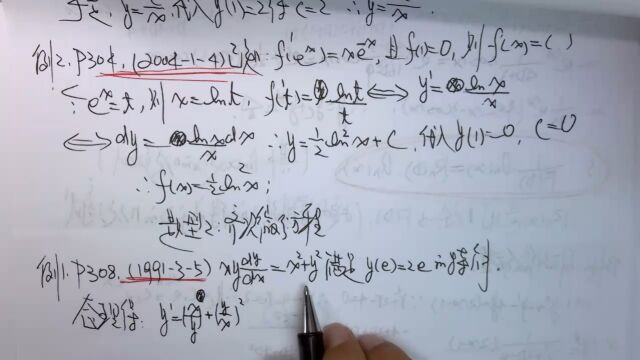 y'=y/x, 代入 y(1)=2得 C=2 ∴y=
例2. P304. (2004-1-4) 已知 f'(e^x)=xe^{-x}, 且 f(1)=0, 则 f(x)=( )
∵e^x=t, 则 x=lnt, f'(t)=lnt/t ⟺ y'=lnx/x
⟺ dy=lnxdx/x ∴y=1/2 ln²x+C, 代入 y(1)=0, C=0
∴f(x)=1/2 ln²x;
类型2: 齐次微分方程
例1. P308. (1991-3-5) xy dy/dx=x²+y² 满足 y(e)=2e 的特解.
整理得: y'=(x/y)+(y/x)